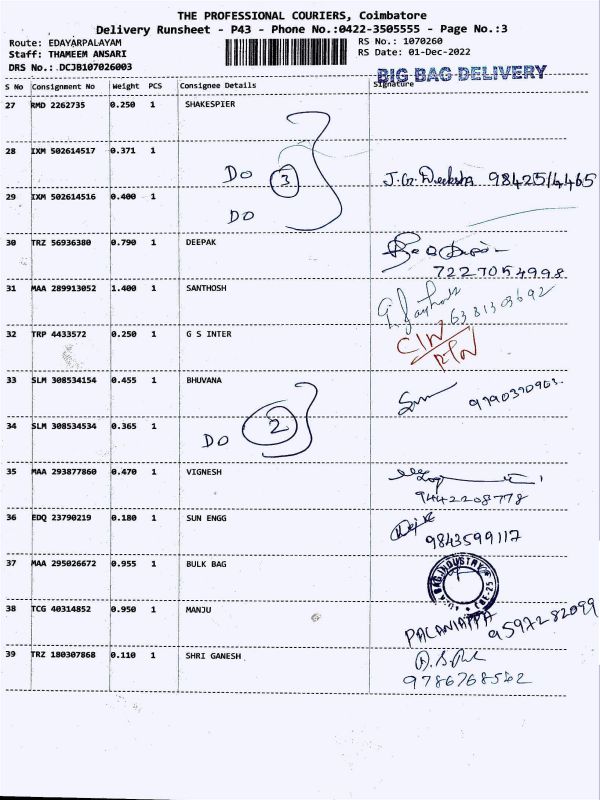 THE PROFESSIONAL COURIERS, Coimbatore
Delivery Runsheet - P43 - Phone No.:0422-3505555 - Page No.:3
Route: EDAYARPALAYAM
Staff: THAMEEM ANSARI
DRS No.: DCJB107026003
RS No.: 1070260
RS Date: 01-Dec-2022
BIG BAG DELIVERY
S No Consignment No Weight PCS Consignee Details Signature
27 RMD 2262735 0.250 1 SHAKESPIER
28 IXM 502614517 0.371 1
Do 3 98425
29 IXM 502614516 0.400 1
Do
30 TRZ 56936380 0.790 1 DEEPAK
7227054998
31 MAA 289913052 1.400 1 SANTHOSH
6381303692
32 TRP 4433572 0.250 1 G S INTER
33 SLM 308534154 0.455 1 BHUVANA
9790370903.
34 SLM 308534534 0.365 1
Do 2
35 MAA 293877860 0.470 1 VIGNESH
9442208778
36 EDQ 23790219 0.180 1 SUN ENGG
9843599117
37 MAA 295026672 0.955 1 BULK BAG
BAG INDUSTRY
38 TCG 40314852 0.950 1 MANJU
PALANIAPPA 9597282099
39 TRZ 180307868 0.110 1 SHRI GANESH
9786768562